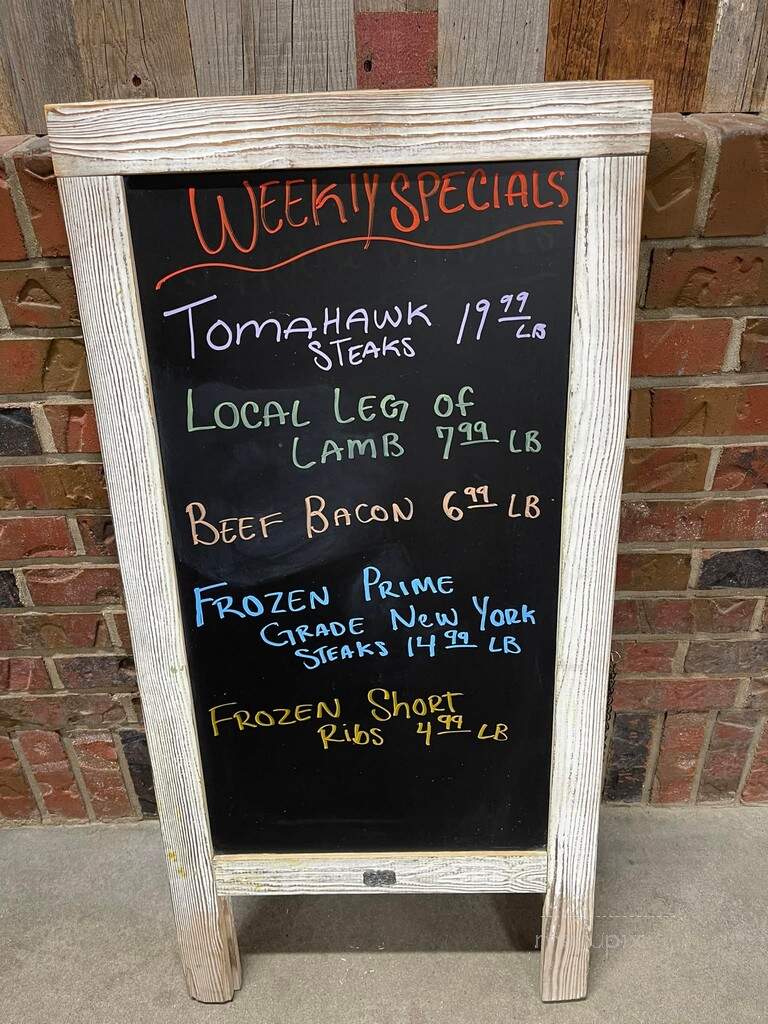 WEEKLY SPECIALS
TOMAHAWK 19 99 LB
STEAKS
LOCAL LEG OF
LAMB 7 99 LB
BEEF BACON 6 99 LB
FROZEN PRIME
GRADE NEW YORK
STEAKS 14 99 LB
FROZEN SHORT
RIBS 4 99 LB